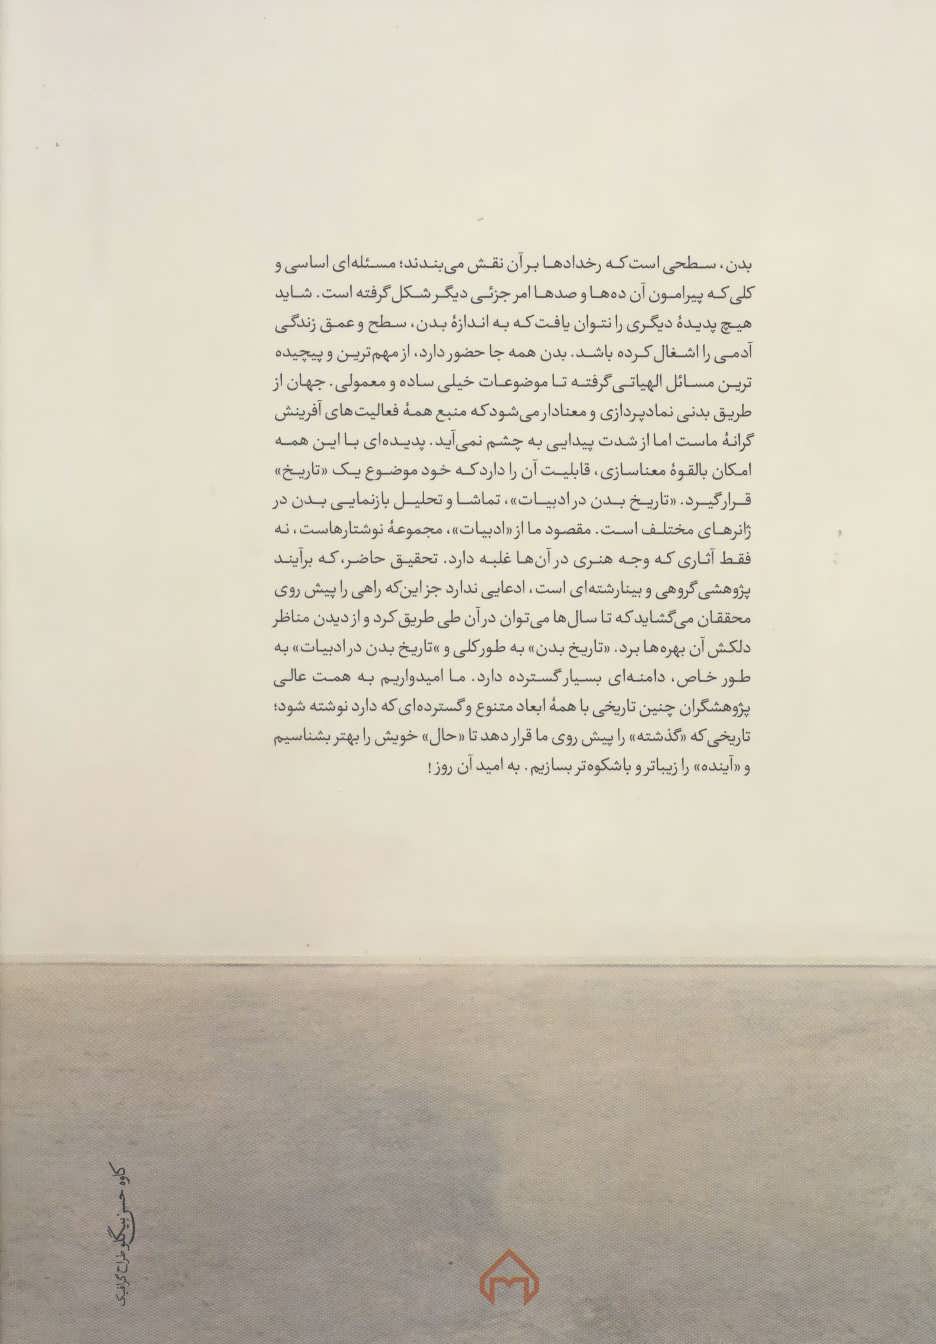 بدن، سطحی است که رخدادها بر آن نقش می‌بندند؛ مسئله‌ای اساسی و
کلی که پیرامون آن ده‌ها و صدها امر جزئی دیگر شکل گرفته است. شاید
هیچ پدیدهٔ دیگری را نتوان یافت که به اندازهٔ بدن، سطح و عمق زندگی
آدمی را اشغال کرده باشد. بدن همه جا حضور دارد، از مهم‌ترین و پیچیده
ترین مسائل الهیاتی گرفته تا موضوعات خیلی ساده و معمولی. جهان از
طریق بدنی نمادپردازی و معنادار می‌شود که منبع همهٔ فعالیت‌های آفرینش
گرانهٔ ماست اما از شدت پیدایی به چشم نمی‌آید. پدیده‌ای با این همه
امکان بالقوهٔ معناسازی، قابلیت آن را دارد که خود موضوع یک «تاریخ»
قرار گیرد. «تاریخ بدن در ادبیات»، تماشا و تحلیل بازنمایی بدن در
ژانرهای مختلف است. مقصود ما از «ادبیات»، مجموعهٔ نوشتارهاست، نه
فقط آثاری که وجه هنری در آن‌ها غلبه دارد. تحقیق حاضر، که برآیند
پژوهشی گروهی و بینارشته‌ای است، ادعایی ندارد جز این‌که راهی را پیش روی
محققان می‌گشاید که تا سال‌ها می‌توان در آن طی طریق کرد و از دیدن مناظر
دلکش آن بهره‌ها برد. «تاریخ بدن» به طور کلی و »تاریخ بدن در ادبیات» به
طور خاص، دامنه‌ای بسیار گسترده دارد. ما امیدواریم به همت عالی
پژوهشگران چنین تاریخی با همهٔ ابعاد متنوع و گسترده‌ای که دارد نوشته شود؛
تاریخی که «گذشته» را پیش روی ما قرار دهد تا «حال» خویش را بهتر بشناسیم
و «آینده» را زیباتر و باشکوه‌تر بسازیم. به امید آن روز!
کاوه حسن بیگلو طراح گرافیک